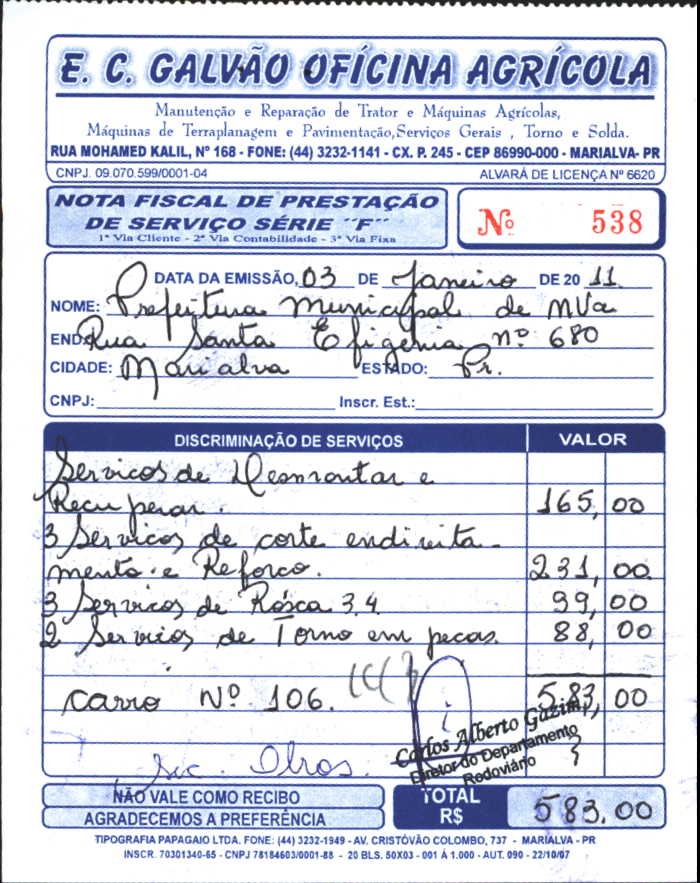 E. C. GALVÃO OFÍCINA AGRÍCOLA
Manutenção e Reparação de Trator e Máquinas Agrícolas,
Máquinas de Terraplanagem e Pavimentação,Serviços Gerais , Torno e Solda.
RUA MOHAMED KALIL, Nº 168 - FONE: (44) 3232-1141 - CX. P. 245 - CEP 86990-000 - MARIALVA- PR
CNPJ. 09.070.599/0001-04 ALVARÁ DE LICENÇA Nº 6620
NOTA FISCAL DE PRESTAÇÃO
DE SERVIÇO SÉRIE ´´F´´
1ª Via Cliente - 2ª Via Contabilidade - 3ª Via Fixa
Nº 538
DATA DA EMISSÃO, 03 DE Janeiro DE 20 11
NOME: Prefeitura municipal de MVa
END: Rua Santa Efigenia nº 680
CIDADE: Marialva ESTADO: Pr.
CNPJ: Inscr. Est.:
DISCRIMINAÇÃO DE SERVIÇOS VALOR
Servicos de Desmontar e
Recuperar. 165,00
3 Servicos de corte endireita-
mento e Reforco. 231,00
3 Servicos de Rosca 3.4 99,00
2 Servicos de Torno em pecas. 88,00
carro Nº 106. 583,00
Carlos Alberto Gazim
Diretor do Departamento
Rodoviário
Sec. Obras.
NÃO VALE COMO RECIBO
AGRADECEMOS A PREFERÊNCIA
TOTAL
R$ 583,00
TIPOGRAFIA PAPAGAIO LTDA. FONE: (44) 3232-1949 - AV. CRISTÓVÃO COLOMBO, 737 - MARIALVA - PR
INSCR. 70301340-65 - CNPJ 78184603/0001-88 - 20 BLS. 50X03 - 001 Á 1.000 - AUT. 090 - 22/10/07